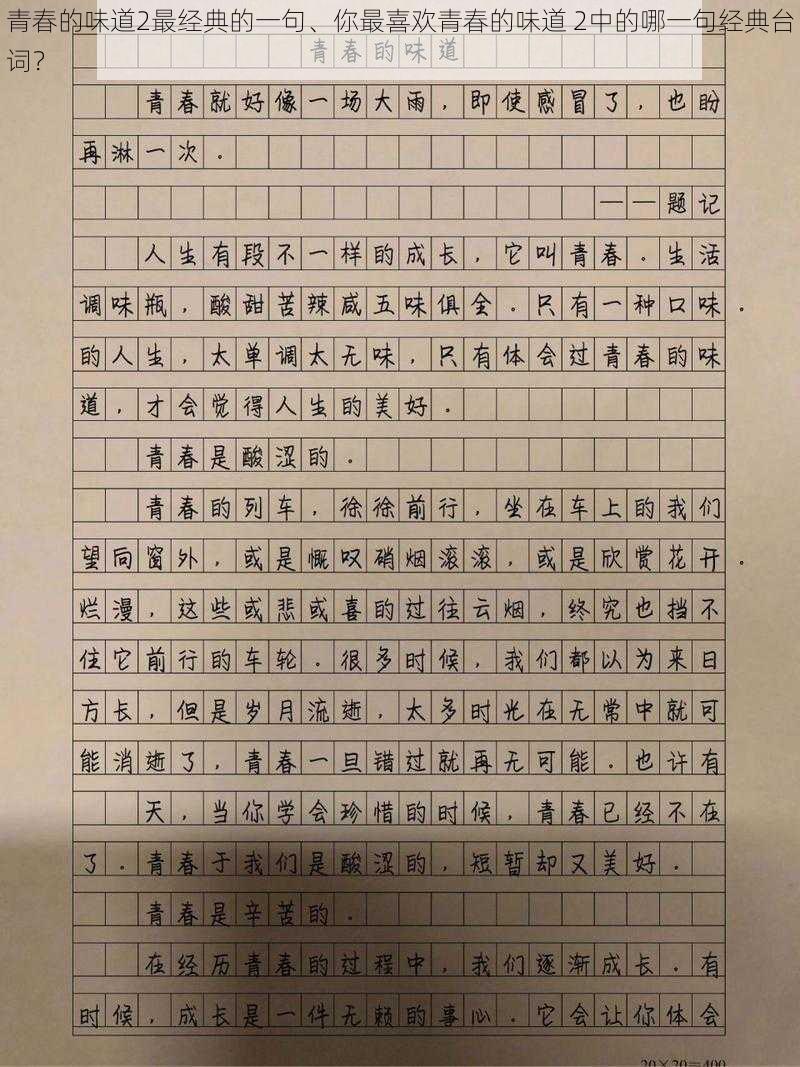 青春的味道2最经典的一句、你最喜欢青春的味道 2中的哪一句经典台
词？
青春的味道
青春就好像一场大雨，即使感冒了，也盼
再淋一次。
——题记
人生有段不一样的成长，它叫青春。生活
调味瓶，酸甜苦辣咸五味俱全。只有一种口味。
的人生，太单调太无味，只有体会过青春的味
道，才会觉得人生的美好。
青春是酸涩的。
青春的列车，徐徐前行，坐在车上的我们
望向窗外，或是慨叹硝烟滚滚，或是欣赏花开。
烂漫，这些或悲或喜的过往云烟，终究也挡不
住它前行的车轮。很多时候，我们都以为来日
方长，但是岁月流逝，太多时光在无常中就可
能消逝了，青春一旦错过就再无可能。也许有
天，当你学会珍惜的时候，青春已经不在
了。青春于我们是酸涩的，短暂却又美好。
青春是辛苦的。
在经历青春的过程中，我们逐渐成长。有
时候，成长是一件无赖的事心。它会让你体会
20×20=400